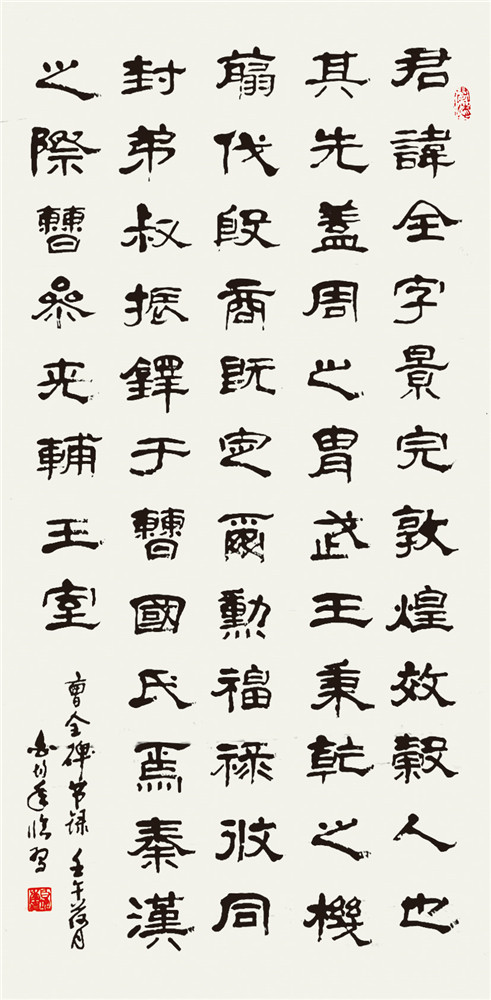 君諱全字景完敦煌效穀人也
其先蓋周之胄武王秉乾之機
翦伐殷商既定爾勳福祿攸同
封弟叔振鐸于曹國氏焉秦漢
之際曹參夾輔王室
曹全碑节録 壬午月
臨習